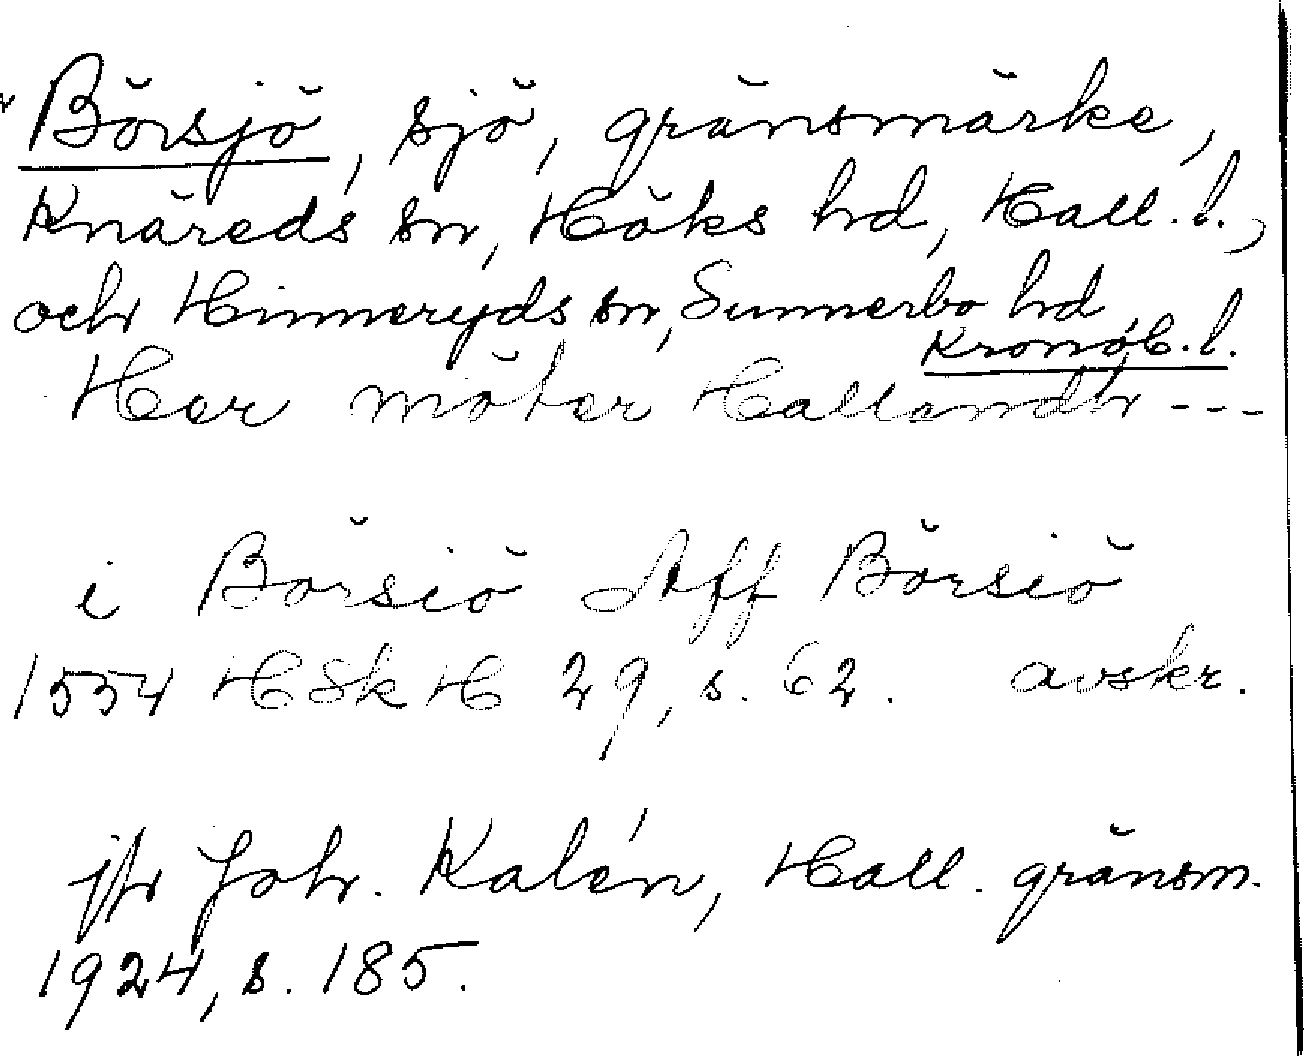 Börsjö, sjö, gränsmärke,
Knäreds sn, Höks hd, Hall. l.,
och Hinneryds sn, Sunnerbo hd,
Kronob. l.
Her möter Hallandh ---
i Börsiö Aff Börsiö
1554 HSkH 29, s. 62. avskr.
jfr Joh. Kalén, Hall. gränsm.
1924, s. 185.